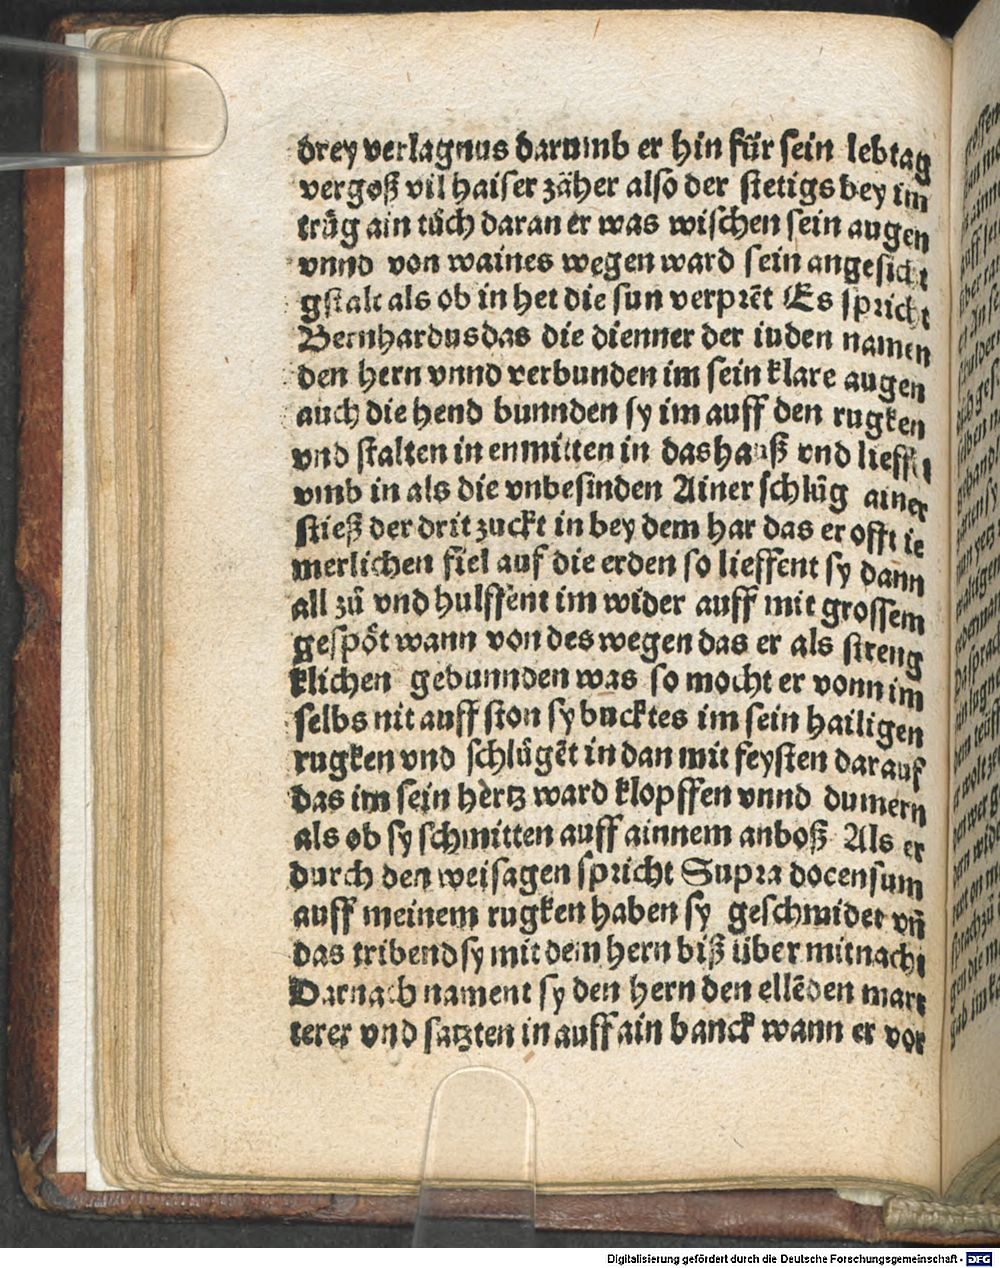 drey verlagnus darumb er hin für sein lebtag
vergoß vil haiser zäher also der stetigs bey im
trůg ain tůch daran er was wischen sein augen
vnnd von waines wegen ward sein angesicht
gstalt als ob in het die sun verprēt Es spricht
Bernhardus das die dienner der iuden namen
den hern vnnd verbunden im sein klare augen
auch die hend bunnden sy im auff den rugken
vnd stalten in enmitten in das hauß vnd lieffēt
vmb in als die vnbesinden Ainer schlůg ainer
stieß der drit zuckt in bey dem har das er offt ie
merlichen fiel auf die erden so lieffent sy dann
all zů vnd hulffent im wider auff mit grossem
gespöt wann von des wegen das er als streng
klichen gebunnden was so mocht er vonn im
selbs nit auff ston sy bucktes im sein hailigen
rugken vnd schlůgēt in dan mit feysten darauf
das im sein hertz ward klopffen vnnd dumern
als ob sy schmitten auff ainnem anboß Als er
durch den weisagen spricht Supra docensum
auff meinem rugken haben sy geschmidet vñ
das tribend sy mit dem hern biß über mitnacht
Darnach nament sy den hern den ellēden mart
terer vnd satzten in auff ain banck wann er vor
Digitalisierung gefördert durch die Deutsche Forschungsgemeinschaft - DFG